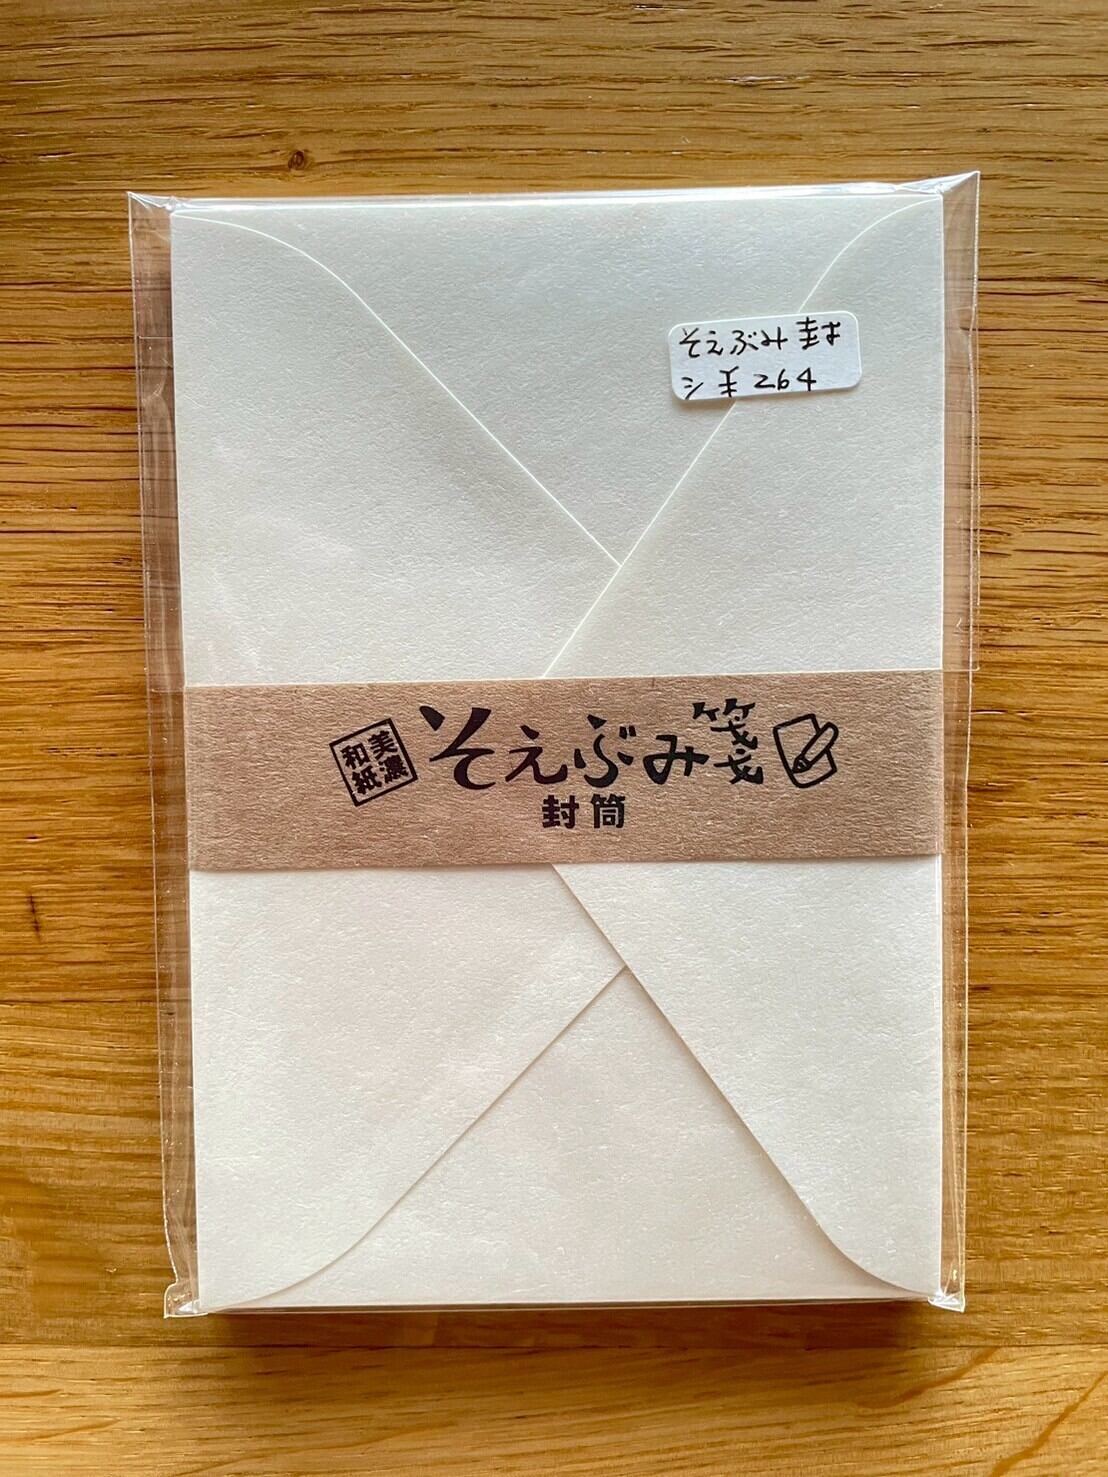 そえぶみ封
シ ¥264
美濃
和紙
そえぶみ箋
封筒